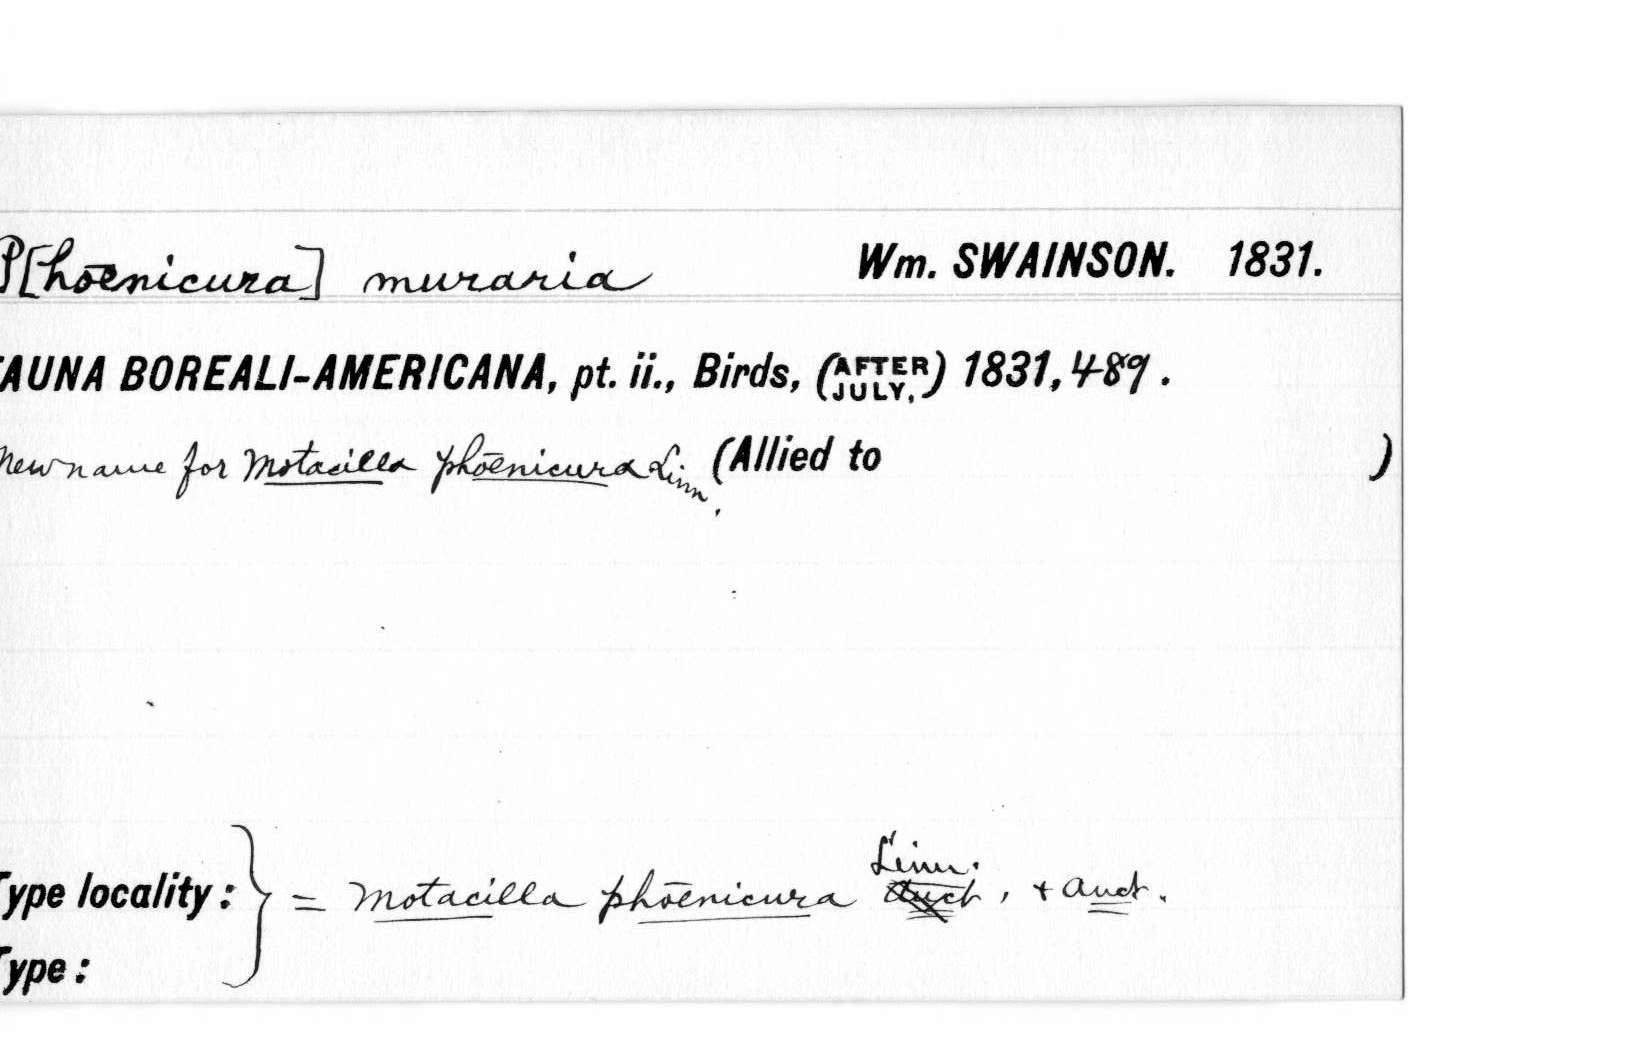 P[hœnicura] muraria Wm. SWAINSON. 1831.
FAUNA BOREALI-AMERICANA, pt. ii., Birds, (AFTER JULY,) 1831, 489.
New name for Motacilla phœnicura Linn. (Allied to )
Linn.
Type locality: } = Motacilla phœnicura Auct, + auct.
Type: